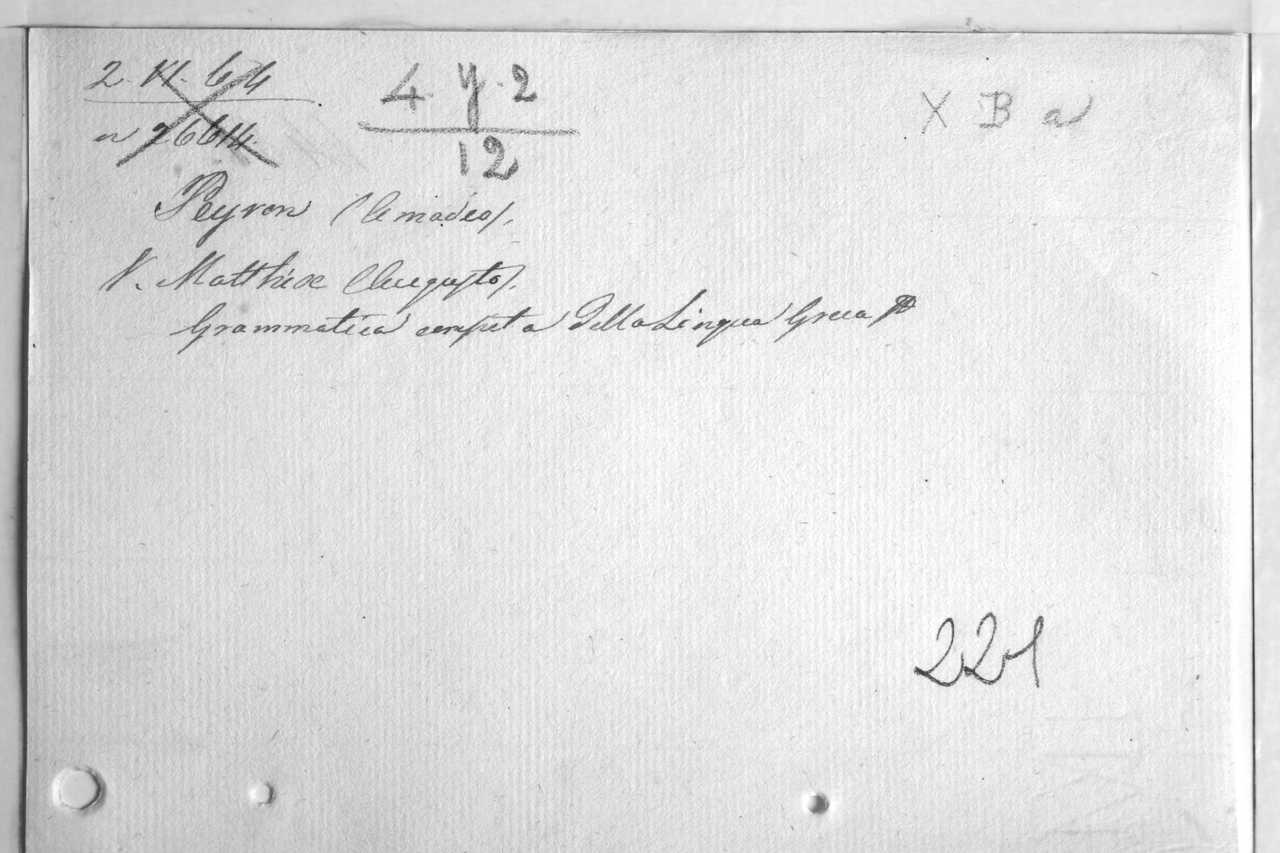 2. VI. 64
4. y. 2
12
X B a
Peyron (Amadeo).
V. Matthiae (Augusto).
Grammatica competa della Lingua Greca
221